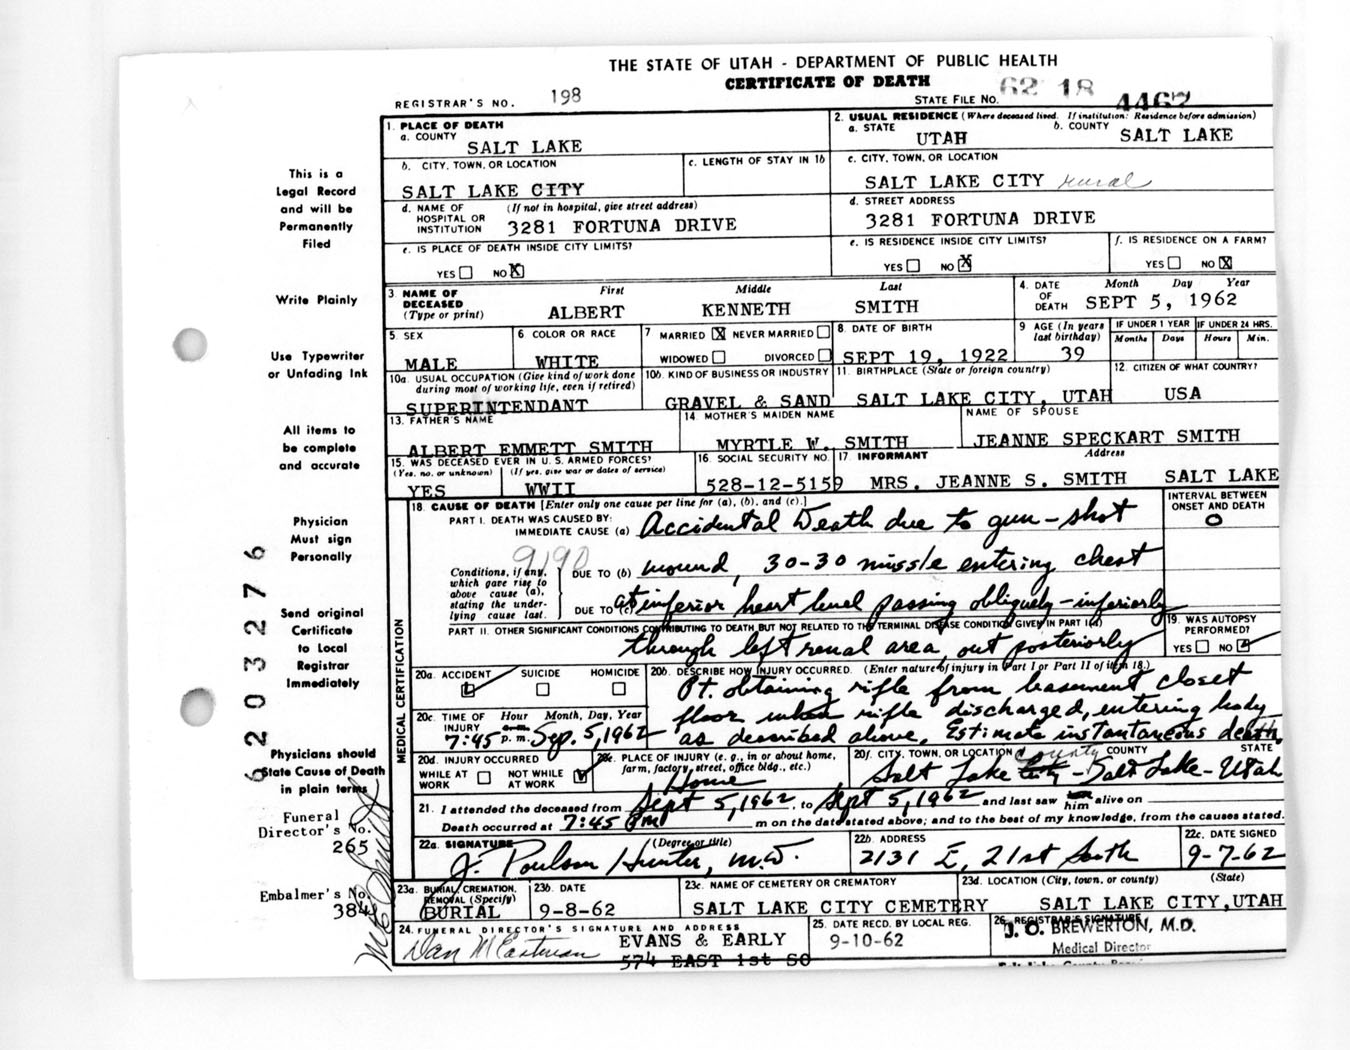 THE STATE OF UTAH - DEPARTMENT OF PUBLIC HEALTH
CERTIFICATE OF DEATH
REGISTRAR'S NO. 198
STATE FILE NO. 62 18 4467
This is a Legal Record and will be Permanently Filed
Write Plainly
Use Typewriter or Unfading Ink
All items to be complete and accurate
Physician Must sign Personally
Send original Certificate to Local Registrar Immediately
Physicians should State Cause of Death in plain terms
Funeral Director's No. 265
Embalmer's No. 384
6203276
1. PLACE OF DEATH
a. COUNTY SALT LAKE
b. CITY, TOWN, OR LOCATION SALT LAKE CITY
c. LENGTH OF STAY IN 1b
d. NAME OF HOSPITAL OR INSTITUTION (If not in hospital, give street address) 3281 FORTUNA DRIVE
e. IS PLACE OF DEATH INSIDE CITY LIMITS?
YES NO X
2. USUAL RESIDENCE (Where deceased lived. If institution: Residence before admission)
a. STATE UTAH b. COUNTY SALT LAKE
c. CITY, TOWN, OR LOCATION
SALT LAKE CITY rural
d. STREET ADDRESS
3281 FORTUNA DRIVE
e. IS RESIDENCE INSIDE CITY LIMITS?
YES NO X
f. IS RESIDENCE ON A FARM?
YES NO X
3. NAME OF DECEASED (Type or print) First Middle Last
ALBERT KENNETH SMITH
4. DATE OF DEATH Month Day Year
SEPT 5, 1962
5. SEX MALE
6. COLOR OR RACE WHITE
7. MARRIED X NEVER MARRIED
WIDOWED DIVORCED
8. DATE OF BIRTH SEPT 19, 1922
9. AGE (In years last birthday) 39
IF UNDER 1 YEAR Months Days
IF UNDER 24 HRS. Hours Min.
10a. USUAL OCCUPATION (Give kind of work done during most of working life, even if retired)
SUPERINTENDANT
10b. KIND OF BUSINESS OR INDUSTRY
GRAVEL & SAND
11. BIRTHPLACE (State or foreign country)
SALT LAKE CITY, UTAH
12. CITIZEN OF WHAT COUNTRY?
USA
13. FATHER'S NAME
ALBERT EMMETT SMITH
14. MOTHER'S MAIDEN NAME
MYRTLE W. SMITH
NAME OF SPOUSE
JEANNE SPECKART SMITH
15. WAS DECEASED EVER IN U. S. ARMED FORCES?
(Yes, no, or unknown) (If yes, give war or dates of service)
YES WWII
16. SOCIAL SECURITY NO.
528-12-5159
17. INFORMANT Address
MRS. JEANNE S. SMITH SALT LAKE
MEDICAL CERTIFICATION
18. CAUSE OF DEATH [Enter only one cause per line for (a), (b), and (c).]
PART I. DEATH WAS CAUSED BY:
IMMEDIATE CAUSE (a) Accidental Death due to gun-shot
INTERVAL BETWEEN ONSET AND DEATH
0
9190
Conditions, if any, which gave rise to above cause (a), stating the underlying cause last.
DUE TO (b) wound, 30-30 missle entering chest
DUE TO (c) at inferior heart level passing obliquely-inferiorly
PART II. OTHER SIGNIFICANT CONDITIONS CONTRIBUTING TO DEATH BUT NOT RELATED TO THE TERMINAL DISEASE CONDITION GIVEN IN PART I(a)
through left renal area, out posteriorly
19. WAS AUTOPSY PERFORMED?
YES NO
20a. ACCIDENT SUICIDE HOMICIDE
20b. DESCRIBE HOW INJURY OCCURRED. (Enter nature of injury in Part I or Part II of item 18.)
Pt. obtaining rifle from basement closet
floor when rifle discharged, entering body
as described above. Estimate instantaneous death
20c. TIME OF INJURY Hour Month, Day, Year
7:45 a.m. p.m. Sep. 5, 1962
20d. INJURY OCCURRED
WHILE AT WORK NOT WHILE AT WORK
20e. PLACE OF INJURY (e. g., in or about home, farm, factory, street, office bldg., etc.)
Home
20f. CITY, TOWN, OR LOCATION COUNTY STATE
County
Salt Lake City - Salt Lake - Utah
21. I attended the deceased from Sept 5, 1962, to Sept 5, 1962 and last saw him alive on
Death occurred at 7:45 pm m on the date stated above; and to the best of my knowledge, from the causes stated.
22a. SIGNATURE (Degree or title)
J. Poulson Hunter, M.D.
22b. ADDRESS
2131 E, 21st South
22c. DATE SIGNED
9-7-62
23a. BURIAL, CREMATION, REMOVAL (Specify)
BURIAL
23b. DATE
9-8-62
23c. NAME OF CEMETERY OR CREMATORY
SALT LAKE CITY CEMETERY
23d. LOCATION (City, town, or county) (State)
SALT LAKE CITY, UTAH
24. FUNERAL DIRECTOR'S SIGNATURE AND ADDRESS
Dan M Eastman EVANS & EARLY
574 EAST 1st SO
25. DATE RECD. BY LOCAL REG.
9-10-62
26. REGISTRAR'S SIGNATURE
J. O. BREWERTON, M.D.
Medical Director